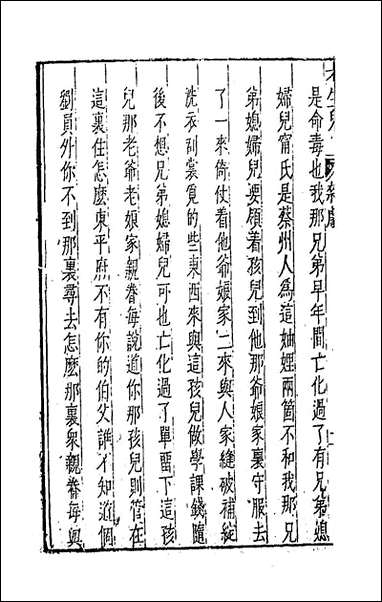 老生兒 雜劇
是命毒也我那兄弟早年間亡化過了有兄弟媳
婦兒甯氏是蔡州人爲這妯娌兩箇不和我那兄
弟媳婦兒要領着孩兒到他那爺娘家裏守服去
了一來倚仗着他爺娘家二來與人家縫破補綻
洗衣刮裳覓的些東西來與這孩兒做學課錢隨
後不想兄弟媳婦兒可也亡化過了單留下這孩
兒那老爺老娘家親眷每說道你那孩兒則管在
這裏住怎麽東平府不有你的伯父誰不知道個
劉員外你不到那裏尋去怎麽那裏衆親眷每與